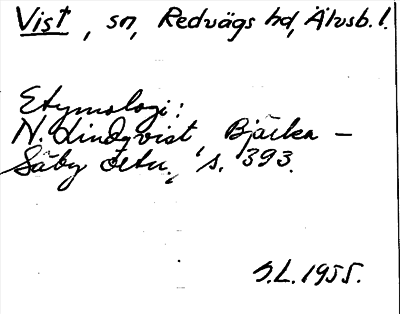 Vist, sn, Redvägs hd, Älvsb. l.
Etymologi:
N. Lindqvist, Bjärka -
Säby ortn., s. 393.
S.L. 1955.